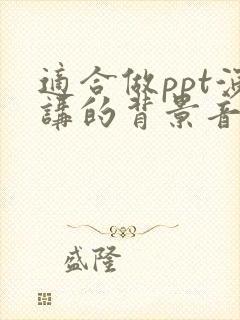 適合做ppt演
講的背景音
盛隆